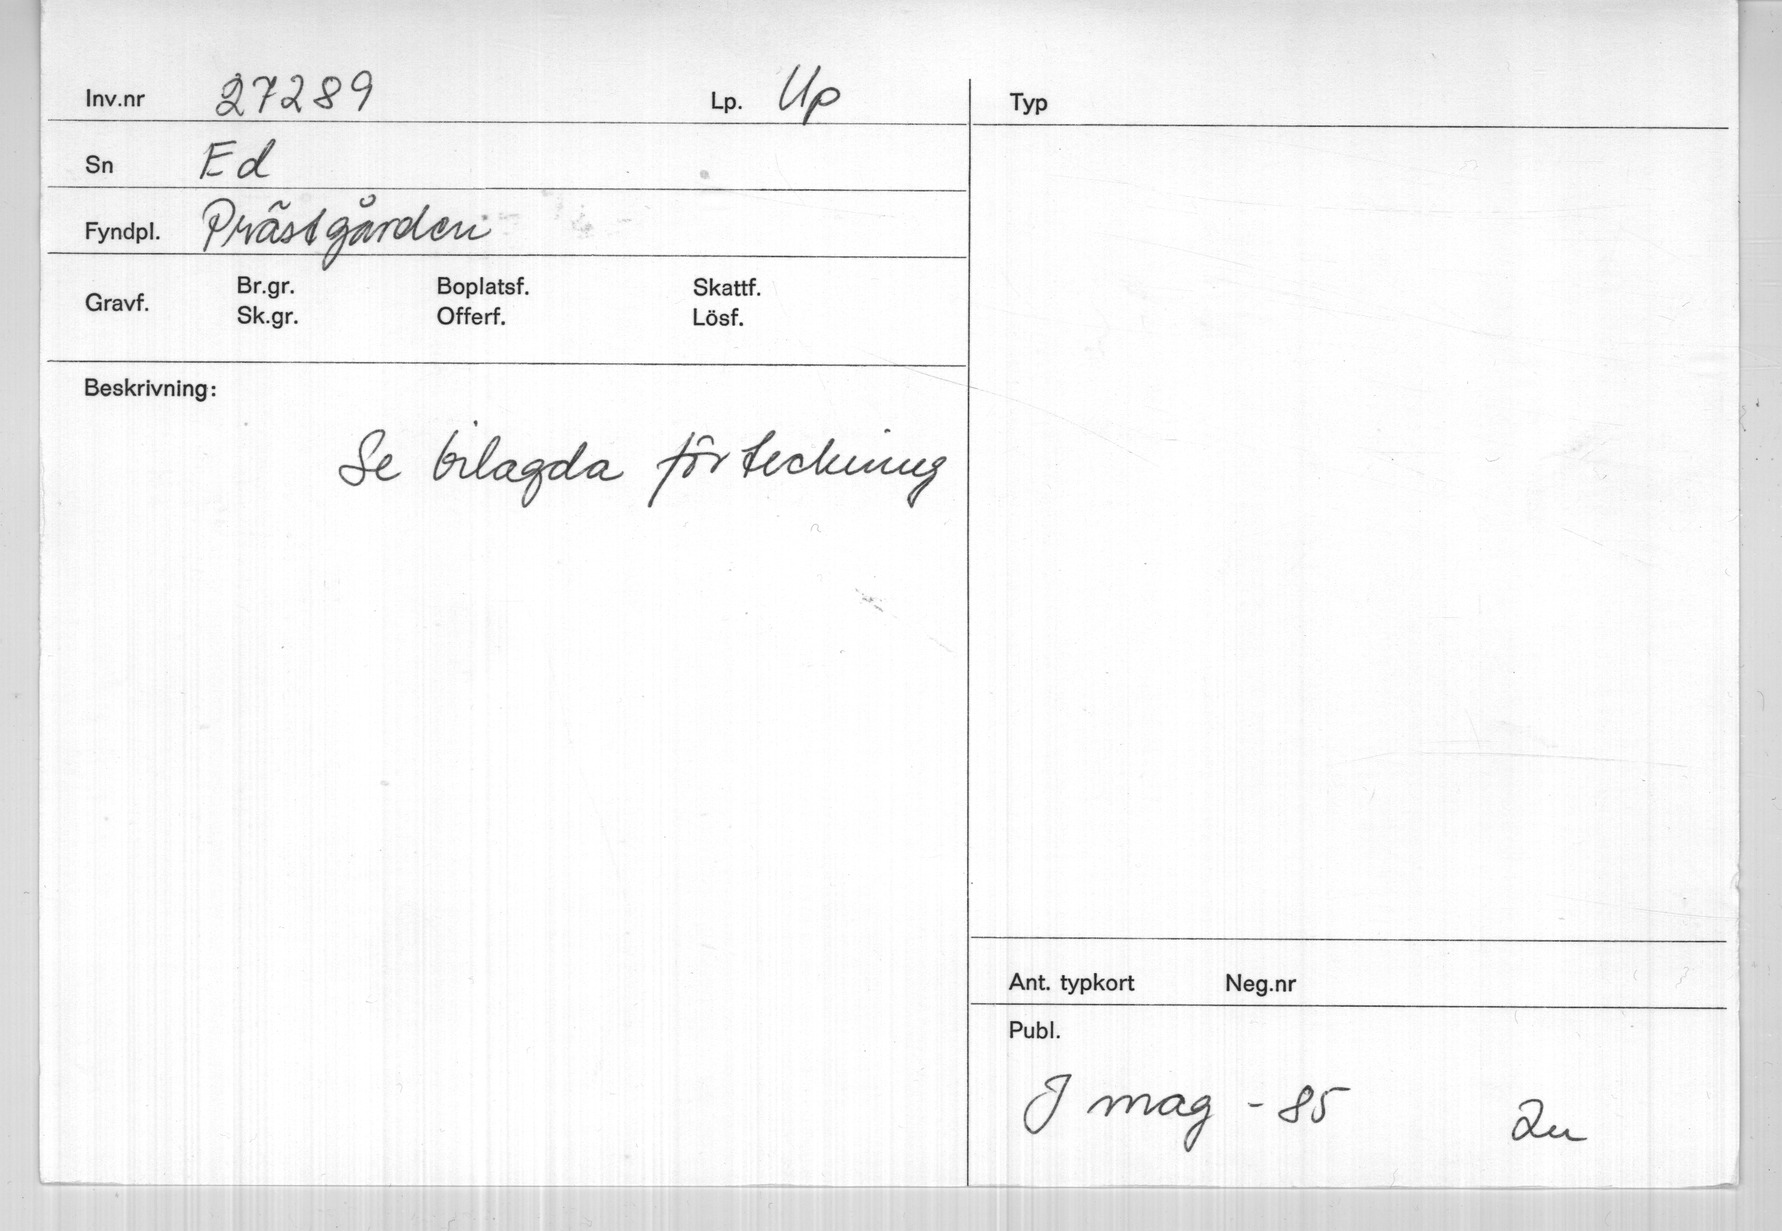 Inv.nr 27289 Lp. Up
Sn Ed
Fyndpl. Prästgården
Gravf. Br.gr. Boplatsf. Skattf.
Sk.gr. Offerf. Lösf.
Beskrivning:
Se bilagda förteckning
Typ
Ant. typkort Neg.nr
Publ.
J mag - 85